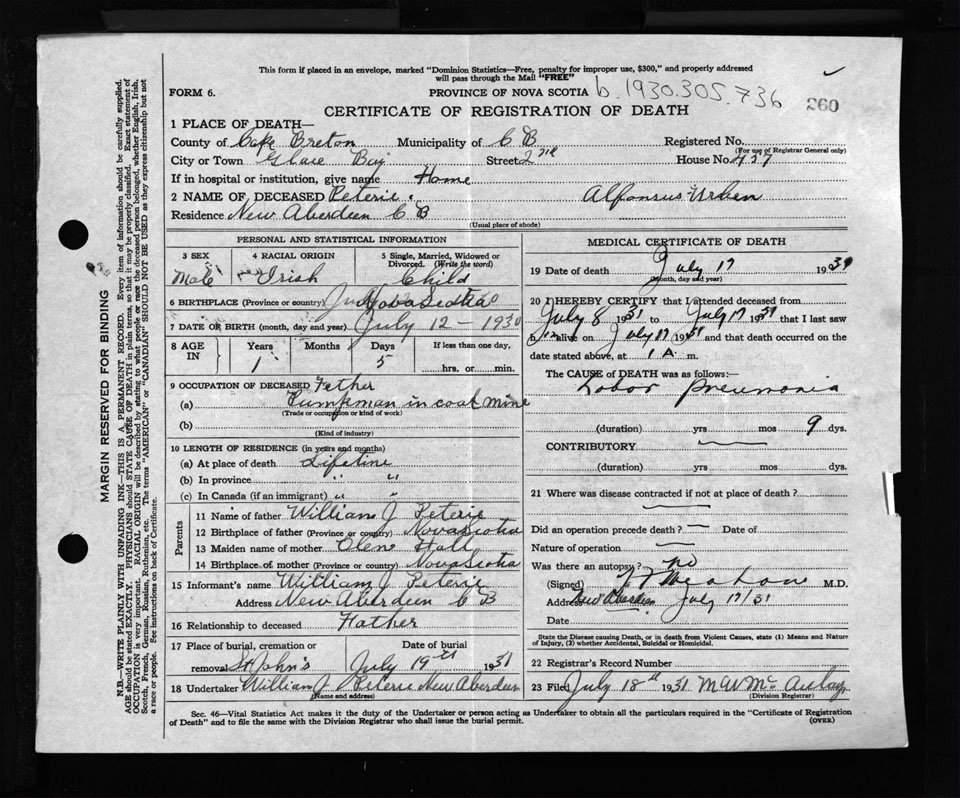 This form if placed in an envelope, marked "Dominion Statistics—Free, penalty for improper use, $300," and properly addressed
will pass through the Mail "FREE"
FORM 6.
PROVINCE OF NOVA SCOTIA b.1930.305.736
260
CERTIFICATE OF REGISTRATION OF DEATH
1 PLACE OF DEATH—
County of Cape Breton Municipality of C B Registered No.
(For use of Registrar General only)
City or Town Glace Bay Street 2nd House No. 437
If in hospital or institution, give name Home
2 NAME OF DECEASED Peterie. Alfonsus
Residence New Aberdeen C B
(Usual place of abode)
PERSONAL AND STATISTICAL INFORMATION
3 SEX 4 RACIAL ORIGIN 5 Single, Married, Widowed or
Divorced. (Write the word)
Male Irish Child
6 BIRTHPLACE (Province or country) Nova Scotia
7 DATE OF BIRTH (month, day and year) July 12 - 1930
8 AGE IN Years Months Days If less than one day,
1 5 hrs. or min.
9 OCCUPATION OF DECEASED Father
(a) Pumpman in coal mine
(Trade or occupation or kind of work)
(b)
(Kind of industry)
10 LENGTH OF RESIDENCE (in years and months)
(a) At place of death Lifetime
(b) In province " "
(c) In Canada (if an immigrant) " "
Parents
11 Name of father William J Peterie
12 Birthplace of father (Province or country) Nova Scotia
13 Maiden name of mother Olen Hall
14 Birthplace of mother (Province or country) Nova Scotia
15 Informant's name William J Peterie
Address New Aberdeen C B
16 Relationship to deceased Father
17 Place of burial, cremation or Date of burial
removal St John's July 19th 1931
18 Undertaker William J Peterie New Aberdeen
(Name and address)
MEDICAL CERTIFICATE OF DEATH
19 Date of death July 17 1931
(month, day and year)
20 I HEREBY CERTIFY that I attended deceased from
July 8 1931 to July 17 1931 that I last saw
h im alive on July 17 1931 and that death occurred on the
date stated above, at 1 A m.
The CAUSE of DEATH was as follows:—
Lobor Pneumonia
(duration) yrs mos 9 dys.
CONTRIBUTORY
(duration) yrs mos dys.
21 Where was disease contracted if not at place of death?
Did an operation precede death? — Date of
Nature of operation
Was there an autopsy? no
(Signed) M.D.
Address New Aberdeen July 17/31
Date
State the Disease causing Death, or in death from Violent Causes, state (1) Means and Nature
of Injury, (2) whether Accidental, Suicidal or Homicidal.
22 Registrar's Record Number
23 Filed July 18th 1931 M W McAulay
(Division Registrar)
Sec. 46—Vital Statistics Act makes it the duty of the Undertaker or person acting as Undertaker to obtain all the particulars required in the "Certificate of Registration
of Death" and to file the same with the Division Registrar who shall issue the burial permit.
(OVER)
MARGIN RESERVED FOR BINDING
N.B.—WRITE PLAINLY WITH UNFADING INK—THIS IS A PERMANENT RECORD. Every item of information should be carefully supplied.
AGE should be stated EXACTLY. PHYSICIANS should STATE CAUSE OF DEATH in plain terms, so that it may be properly classified. Exact statement of
OCCUPATION is very important. RACIAL ORIGIN will be described by stating to what people or race the deceased person belonged, whether English, Irish,
Scotch, French, German, Russian, Ruthenian, etc. The terms "AMERICAN" or "CANADIAN" SHOULD NOT BE USED as they express citizenship but not
a race or people. See instructions on back of Certificate.